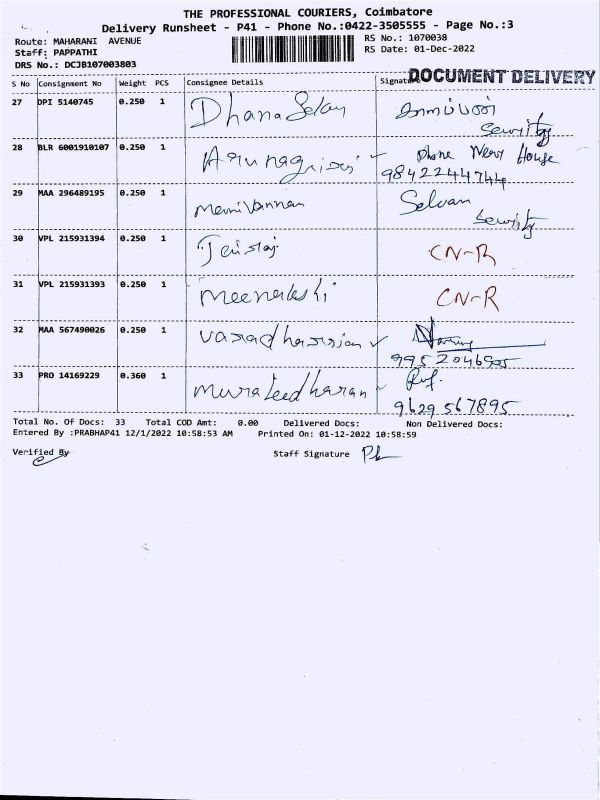 THE PROFESSIONAL COURIERS, Coimbatore
Delivery Runsheet - P41 - Phone No.:0422-3505555 - Page No.:3
Route: MAHARANI AVENUE
RS No.: 1070038
Staff: PAPPATHI
RS Date: 01-Dec-2022
DRS No.: DCJB107003803
DOCUMENT DELIVERY
S No Consignment No Weight PCS Consignee Details Signature
27 DPI 5140745 0.250 1 Dhana Selay
Security
28 BLR 6001910107 0.250 1 Phone New House
9842244744
29 MAA 296489195 0.250 1 Manivannan Selvan
Security
30 VPL 215931394 0.250 1 CN-R
31 VPL 215931393 0.250 1 Meenakshi CN-R
32 MAA 567490026 0.250 1
33 PRO 14169229 0.360 1
9629567895
Total No. Of Docs: 33 Total COD Amt: 0.00 Delivered Docs: Non Delivered Docs:
Entered By :PRABHAP41 12/1/2022 10:58:53 AM Printed On: 01-12-2022 10:58:59
Verified By Staff Signature